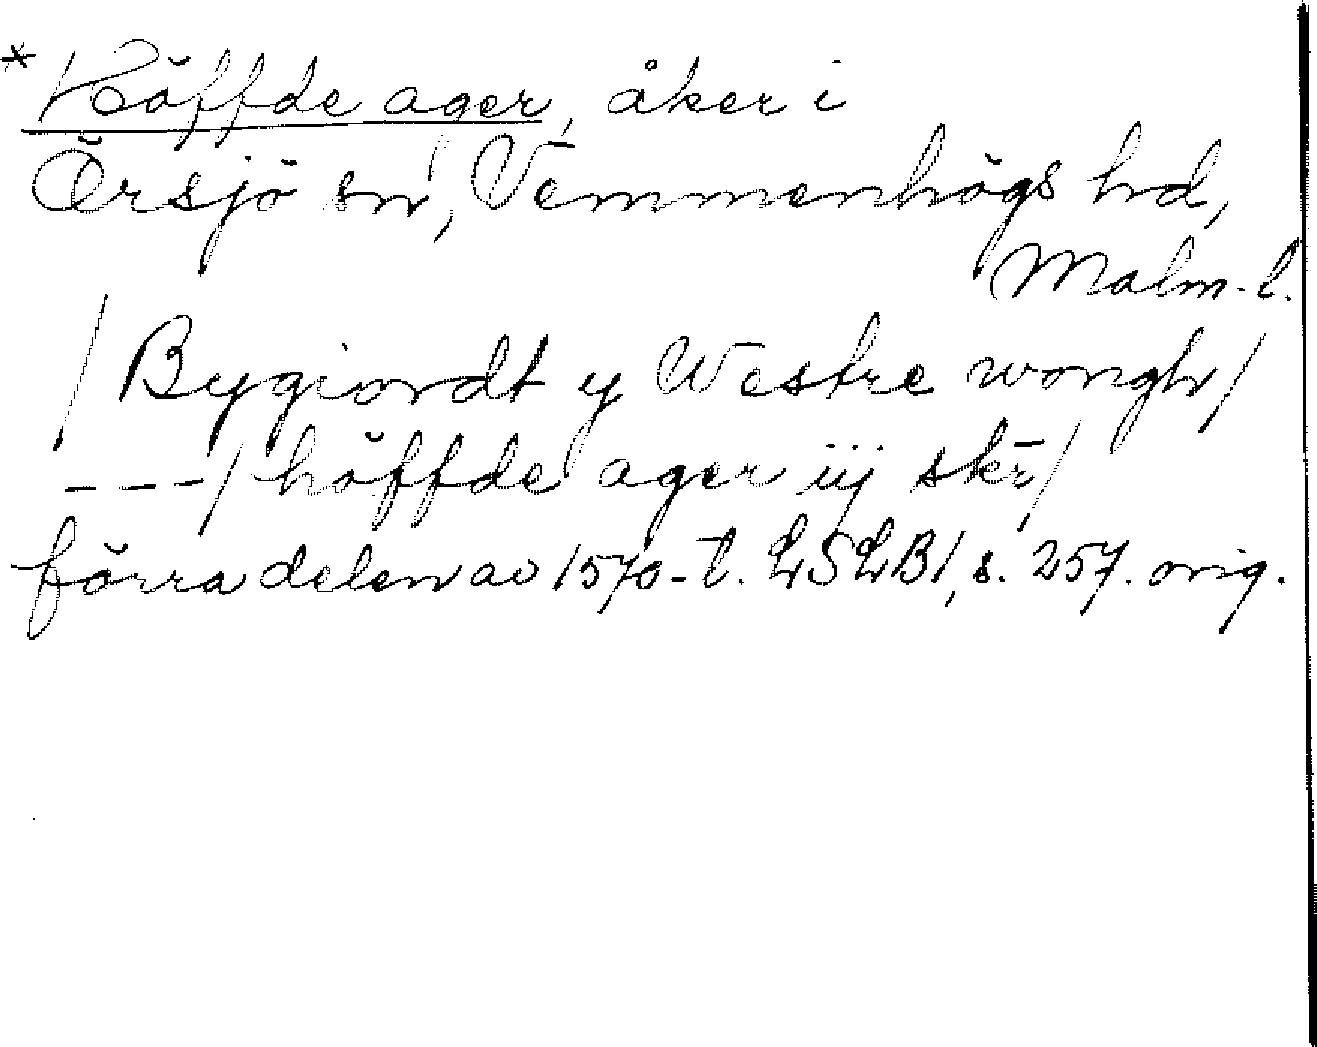 * Höffde ager, åker i
Örsjö sn, Vemmenhögs hd,
Malm. l.
/ Bygiordt y Westre wongh /
--- / höffde ager iij skr̄ /
förra delen av 1570-t. LSLB1, s. 257. orig.